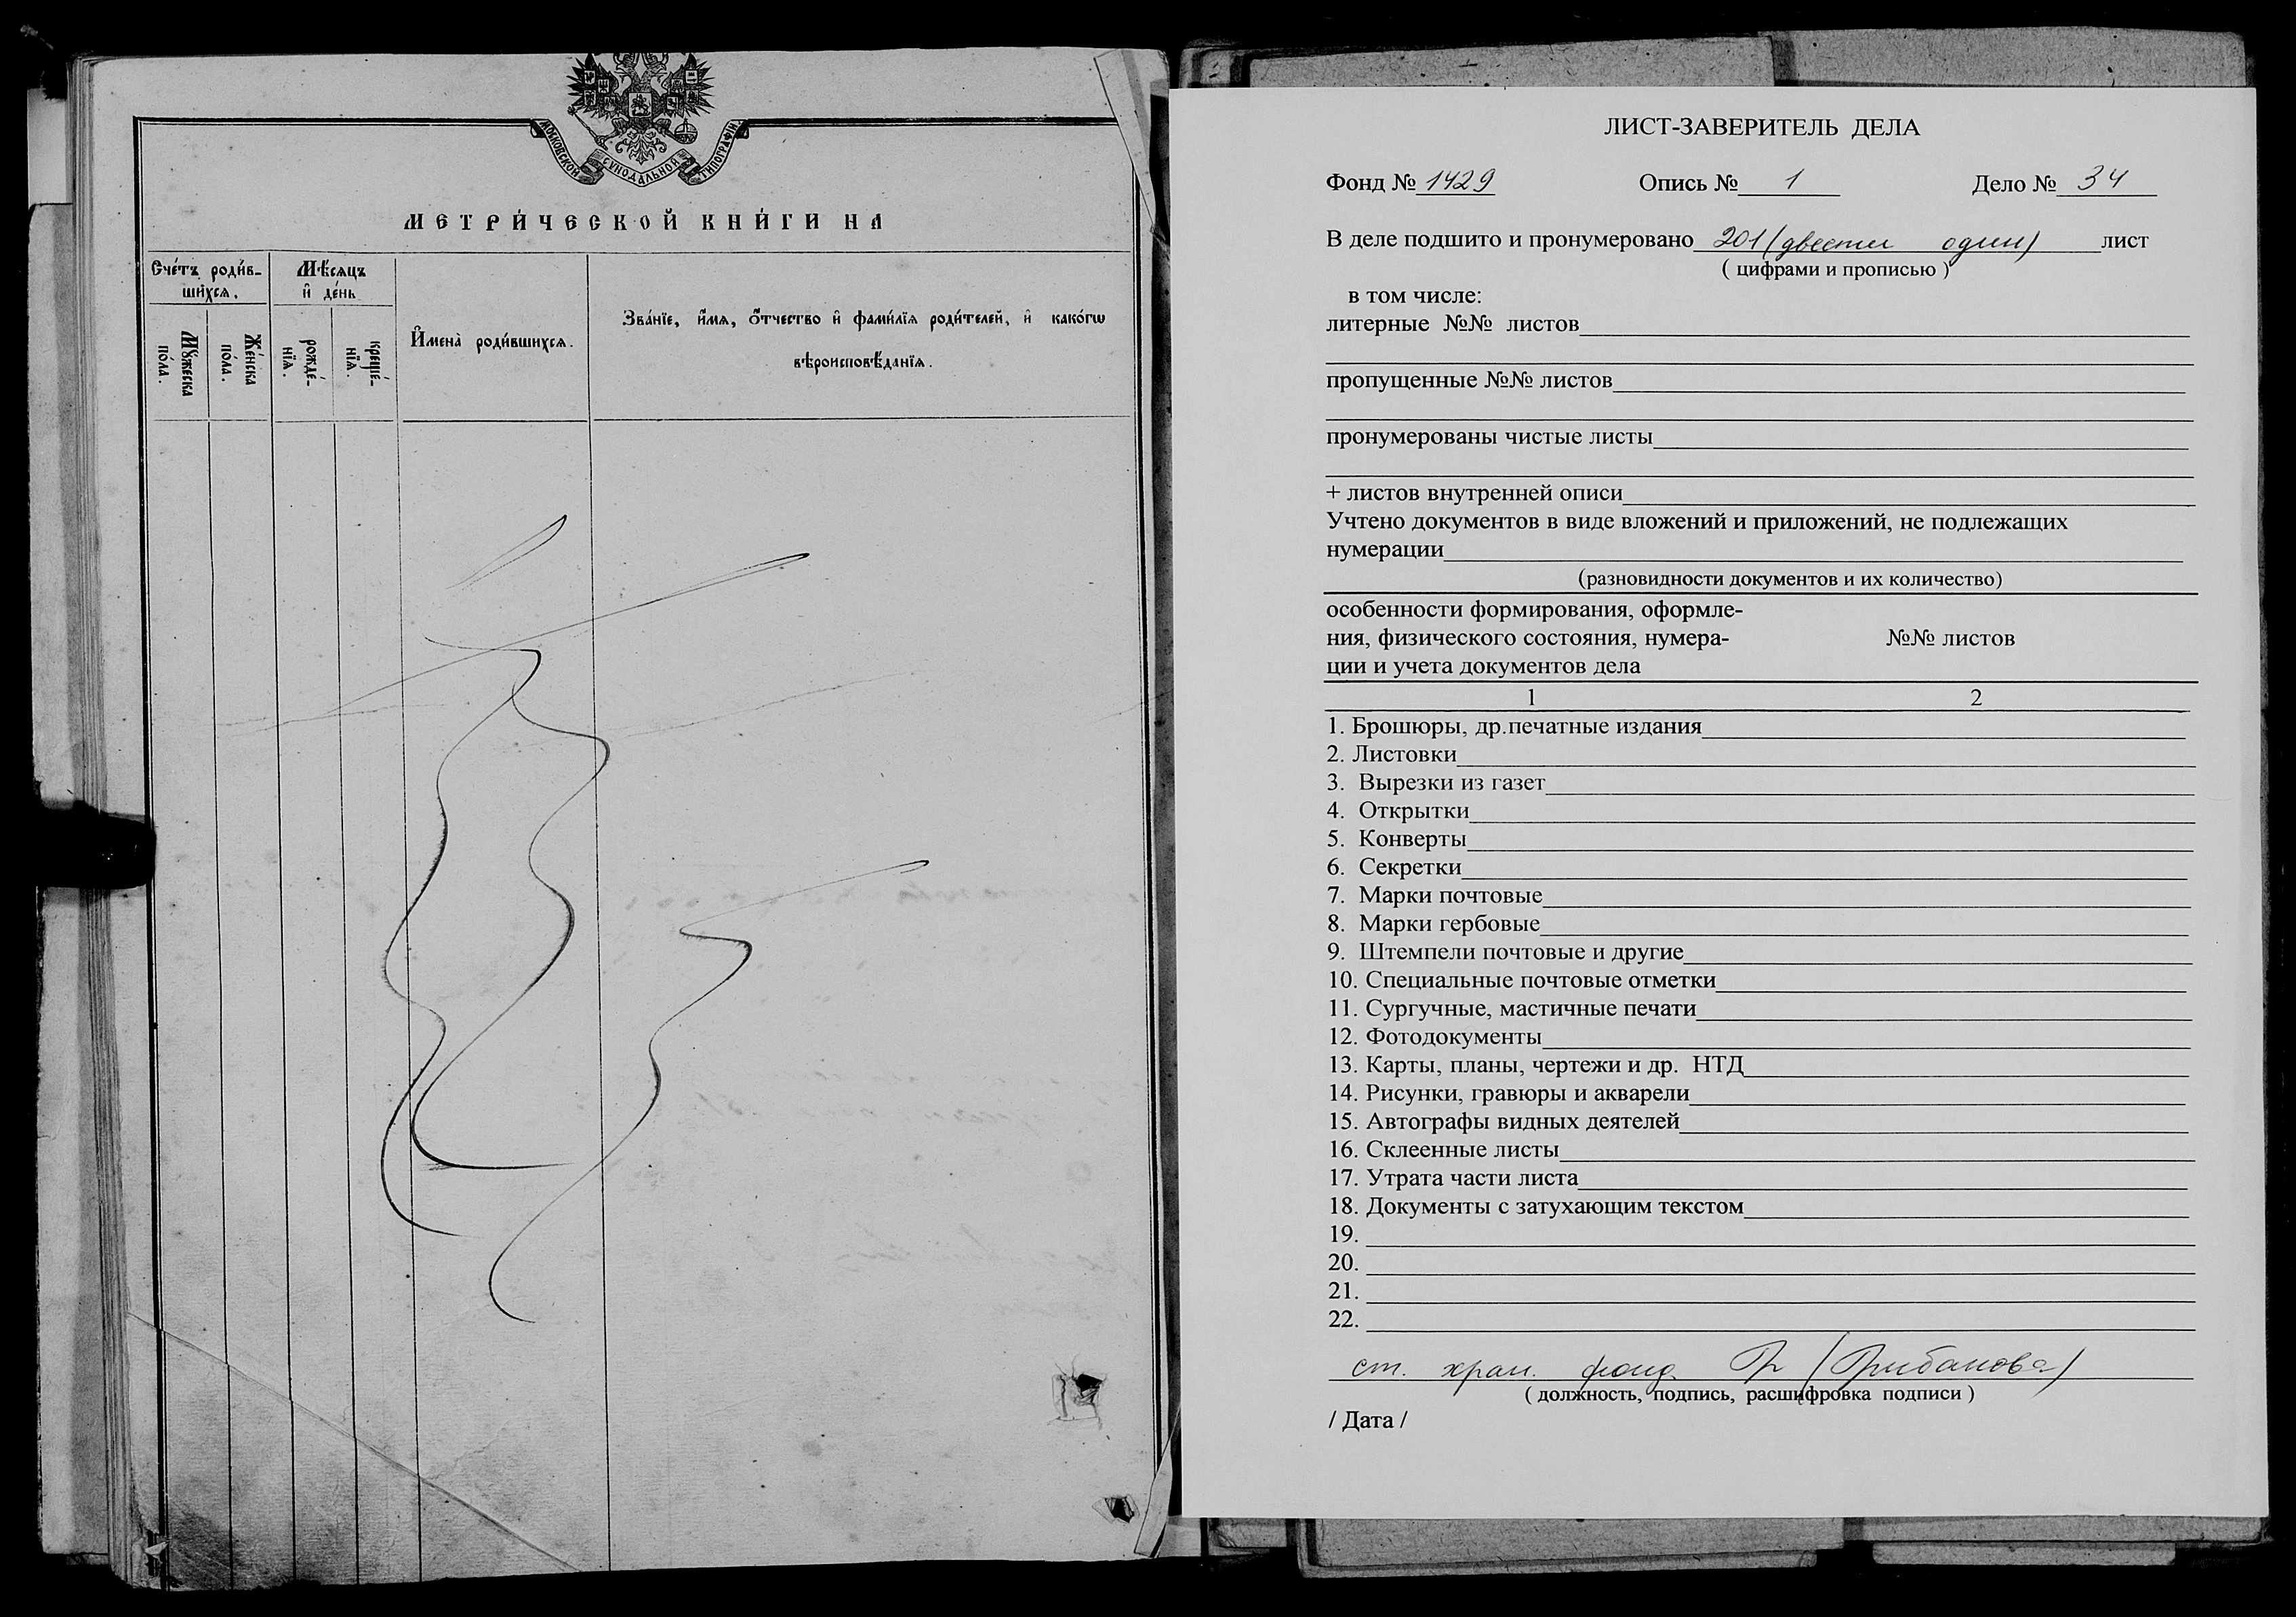 МОСКОВСКОЙ СѴНОДАЛЬНОЙ ТИПОГРАФІИ
МЕТРИ́ЧЕСКОЙ КНИ́ГИ НА
Сче́тъ роди́в-
шихсѧ.
Мѣ́сѧцъ
и҆ де́нь
Мꙋ́жеска
по́ла.
Же́нска
по́ла.
рожде́-
нїѧ.
креще́-
нїѧ.
И҆мена̀ роди́вшихсѧ.
Зва́нїе, и҆́мѧ, ѻ҆́тчество и҆ фами́лїѧ роди́телей, и҆ како́гѡ
вѣроисповѣ́данїѧ.
ЛИСТ-ЗАВЕРИТЕЛЬ ДЕЛА
Фонд № 1429 Опись № 1 Дело № 34
В деле подшито и пронумеровано 201 (двести один) лист
( цифрами и прописью )
в том числе:
литерные №№ листов
пропущенные №№ листов
пронумерованы чистые листы
+ листов внутренней описи
Учтено документов в виде вложений и приложений, не подлежащих
нумерации
(разновидности документов и их количество)
особенности формирования, оформле-
ния, физического состояния, нумера- №№ листов
ции и учета документов дела
1 2
1. Брошюры, др.печатные издания
2. Листовки
3. Вырезки из газет
4. Открытки
5. Конверты
6. Секретки
7. Марки почтовые
8. Марки гербовые
9. Штемпели почтовые и другие
10. Специальные почтовые отметки
11. Сургучные, мастичные печати
12. Фотодокументы
13. Карты, планы, чертежи и др. НТД
14. Рисунки, гравюры и акварели
15. Автографы видных деятелей
16. Склеенные листы
17. Утрата части листа
18. Документы с затухающим текстом
19.
20.
21.
22.
ст. хран. фонд. (Грибанова)
( должность, подпись, расшифровка подписи )
/ Дата /